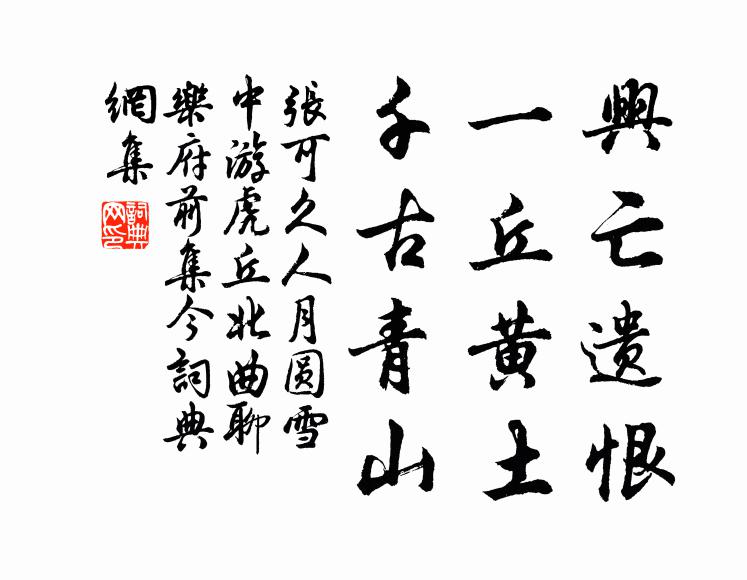 興亡遺恨
一丘黃土
千古青山
張可久人月圓雪
中游虎丘北曲聊
樂府前集今詞典
網集
詞典網印